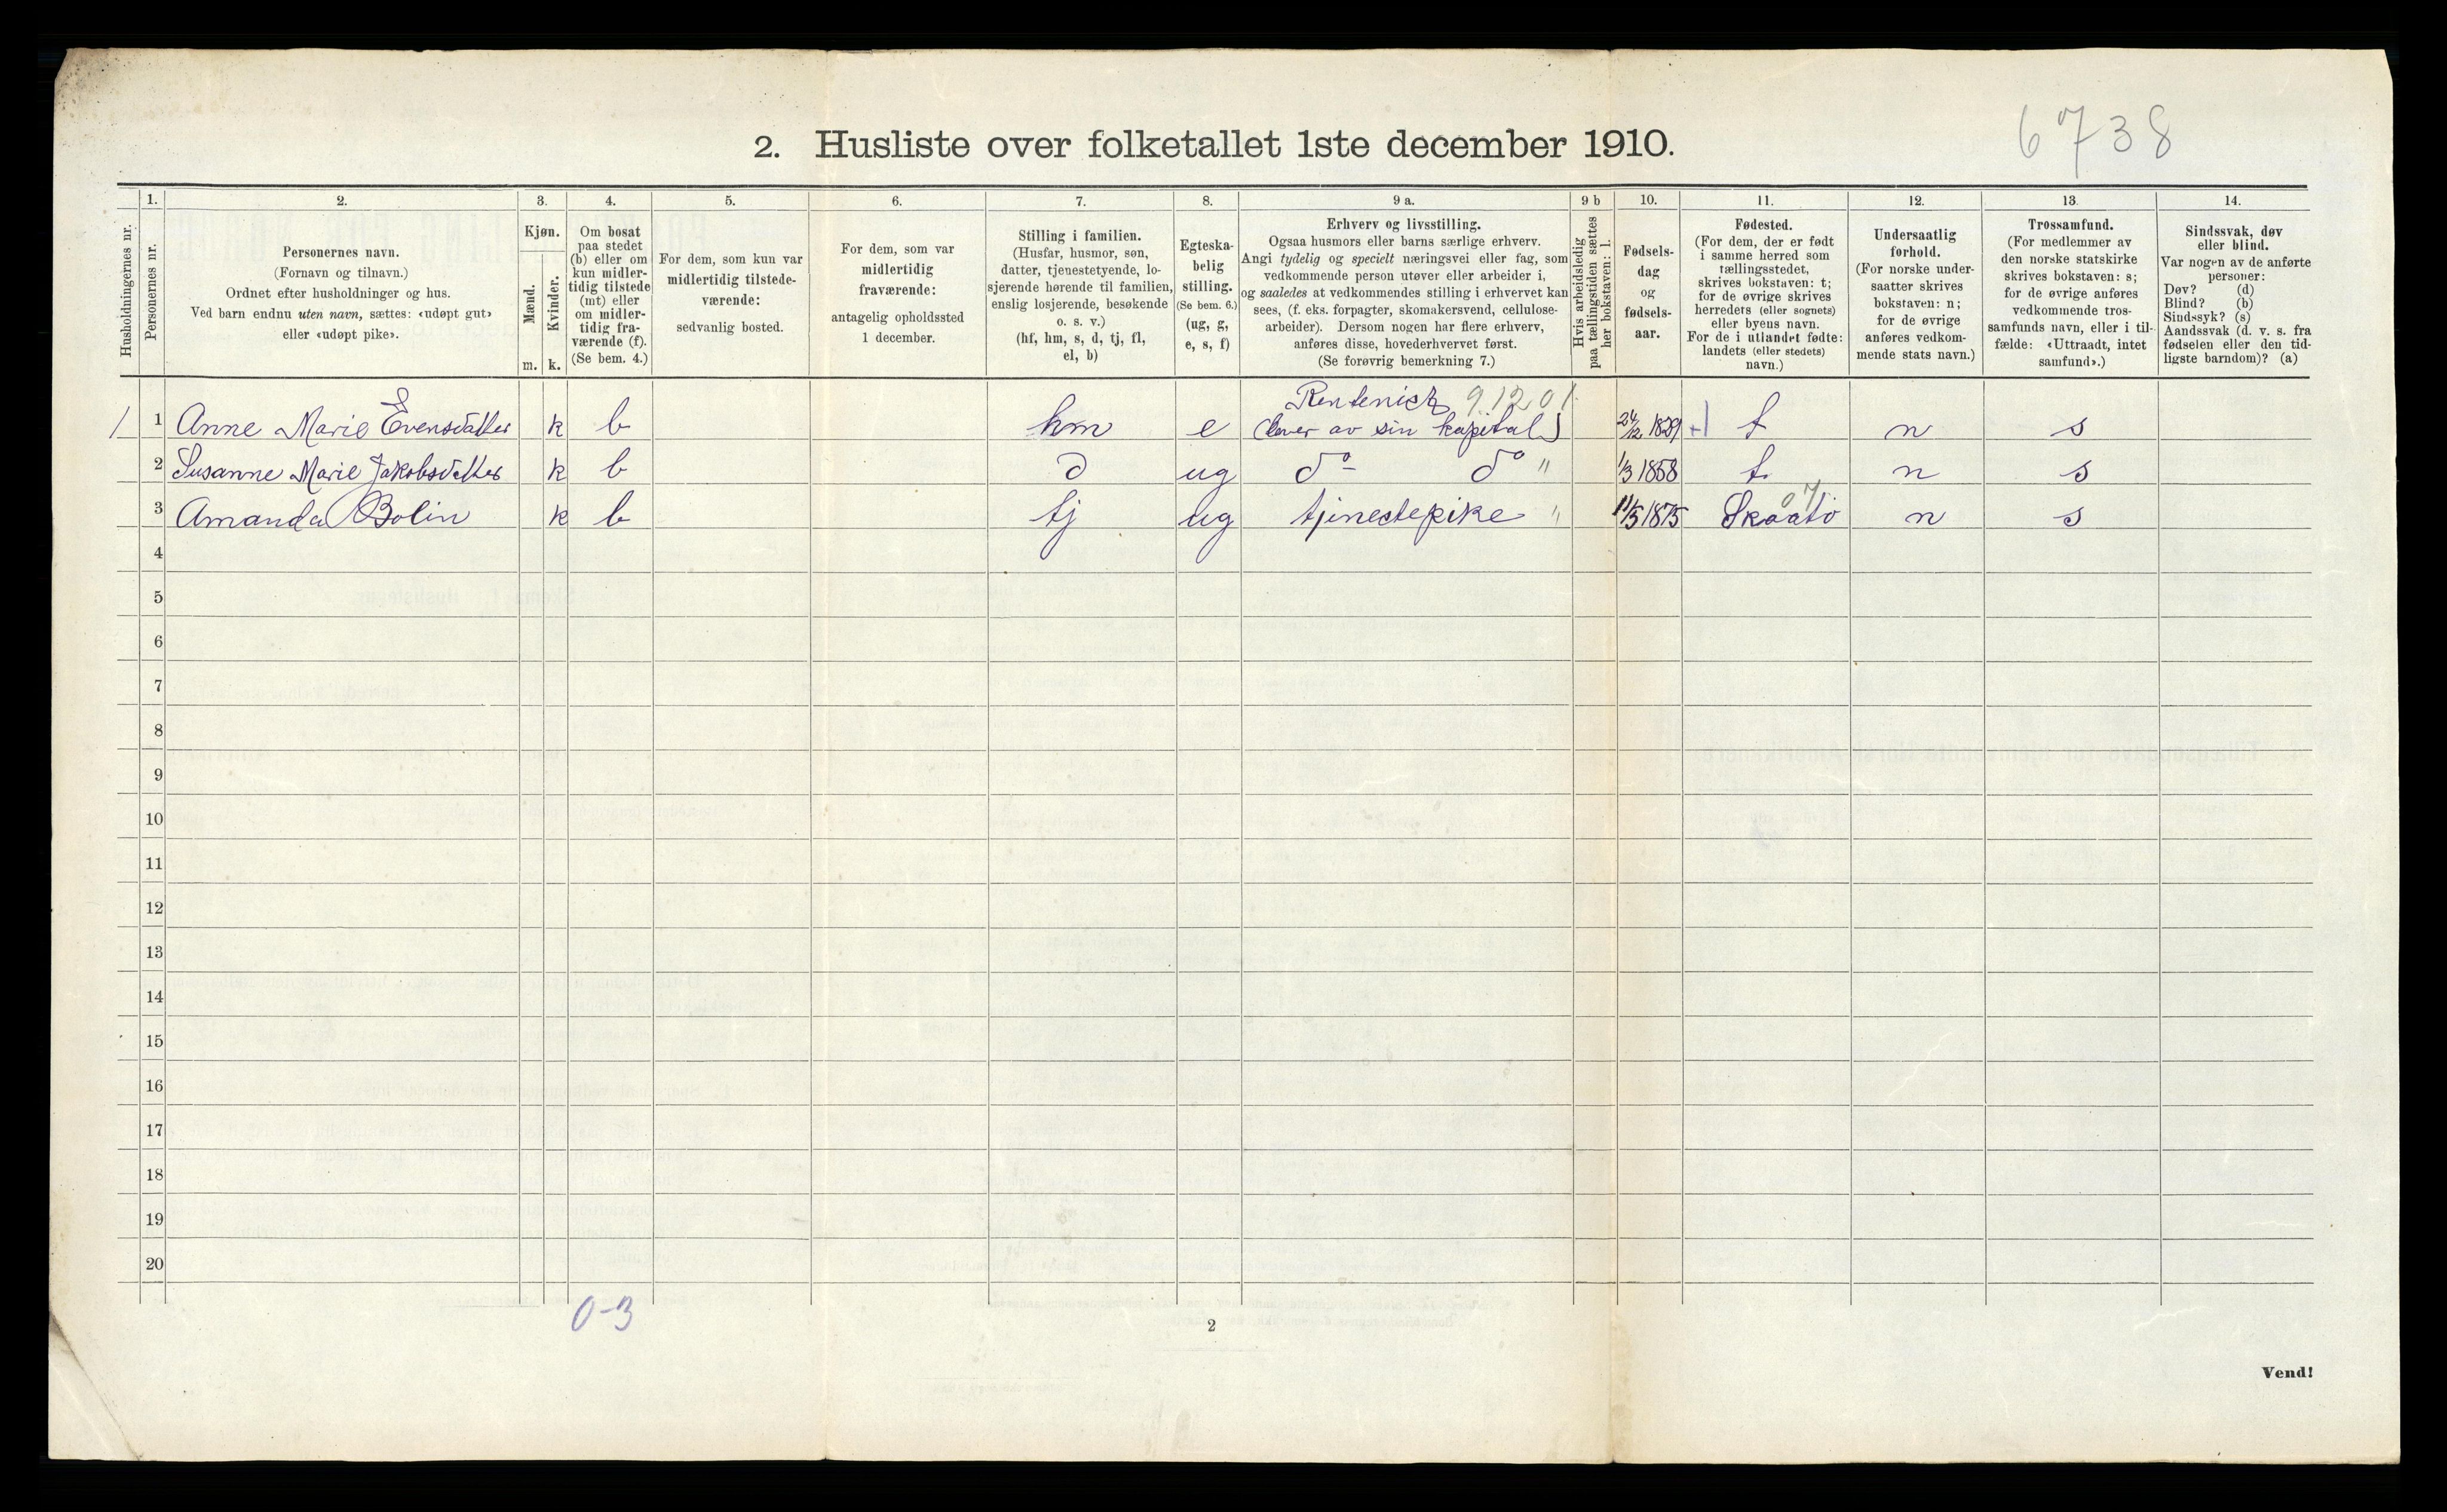 6738
2. Husliste over folketallet 1ste december 1910.
Husholdningernes nr.
1. Personernes nr.
2. Personernes navn. (Fornavn og tilnavn.) Ordnet efter husholdninger og hus. Ved barn endnu uten navn, sættes: «udøpt gut» eller «udøpt pike».
3. Kjøn. Mænd. m. Kvinder. k.
4. Om bosat paa stedet (b) eller om kun midlertidig tilstede (mt) eller om midlertidig fraværende (f). (Se bem. 4.)
5. For dem, som kun var midlertidig tilstedeværende: sedvanlig bosted.
6. For dem, som var midlertidig fraværende: antagelig opholdssted 1 december.
7. Stilling i familien. (Husfar, husmor, søn, datter, tjenestetyende, losjerende hørende til familien, enslig losjerende, besøkende o. s. v.) (hf, hm, s, d, tj, fl, el, b)
8. Egteskabelig stilling. (Se bem. 6.) (ug, g, e, s, f)
9 a. Erhverv og livsstilling. Ogsaa husmors eller barns særlige erhverv. Angi tydelig og specielt næringsvei eller fag, som vedkommende person utøver eller arbeider i, og saaledes at vedkommendes stilling i erhvervet kan sees, (f. eks. forpagter, skomakersvend, cellulosearbeider). Dersom nogen har flere erhverv, anføres disse, hovederhvervet først. (Se forøvrig bemerkning 7.)
9 b Hvis arbeidsledig paa tællingstiden sættes her bokstaven: l.
10. Fødselsdag og fødselsaar.
11. Fødested. (For dem, der er født i samme herred som tællingsstedet, skrives bokstaven: t; for de øvrige skrives herredets (eller sognets) eller byens navn. For de i utlandet fødte: landets (eller stedets) navn.)
12. Undersaatlig forhold. (For norske undersaatter skrives bokstaven: n; for de øvrige anføres vedkommende stats navn.)
13. Trossamfund. (For medlemmer av den norske statskirke skrives bokstaven: s; for de øvrige anføres vedkommende trossamfunds navn, eller i tilfælde: «Uttraadt, intet samfund».)
14. Sindssvak, døv eller blind. Var nogen av de anførte personer: Døv? (d) Blind? (b) Sindssyk? (s) Aandssvak (d. v. s. fra fødselen eller den tidligste barndom)? (a)
Rentenist 91201
1 1 Anne Marie Evensdatter k b hm e (lever av sin kapital) 24/12 1829 t n s
2 Susanne Marie Jakobsdatter k b d ug do do " 1/3 1858 t n s
3 Amanda Bolin k b tj ug tjenestepike " 11/5 1875 Skaatö 07 n s
4
5
6
7
8
9
10
11
12
13
14
15
16
17
18
19
20
0-3
2
Vend!